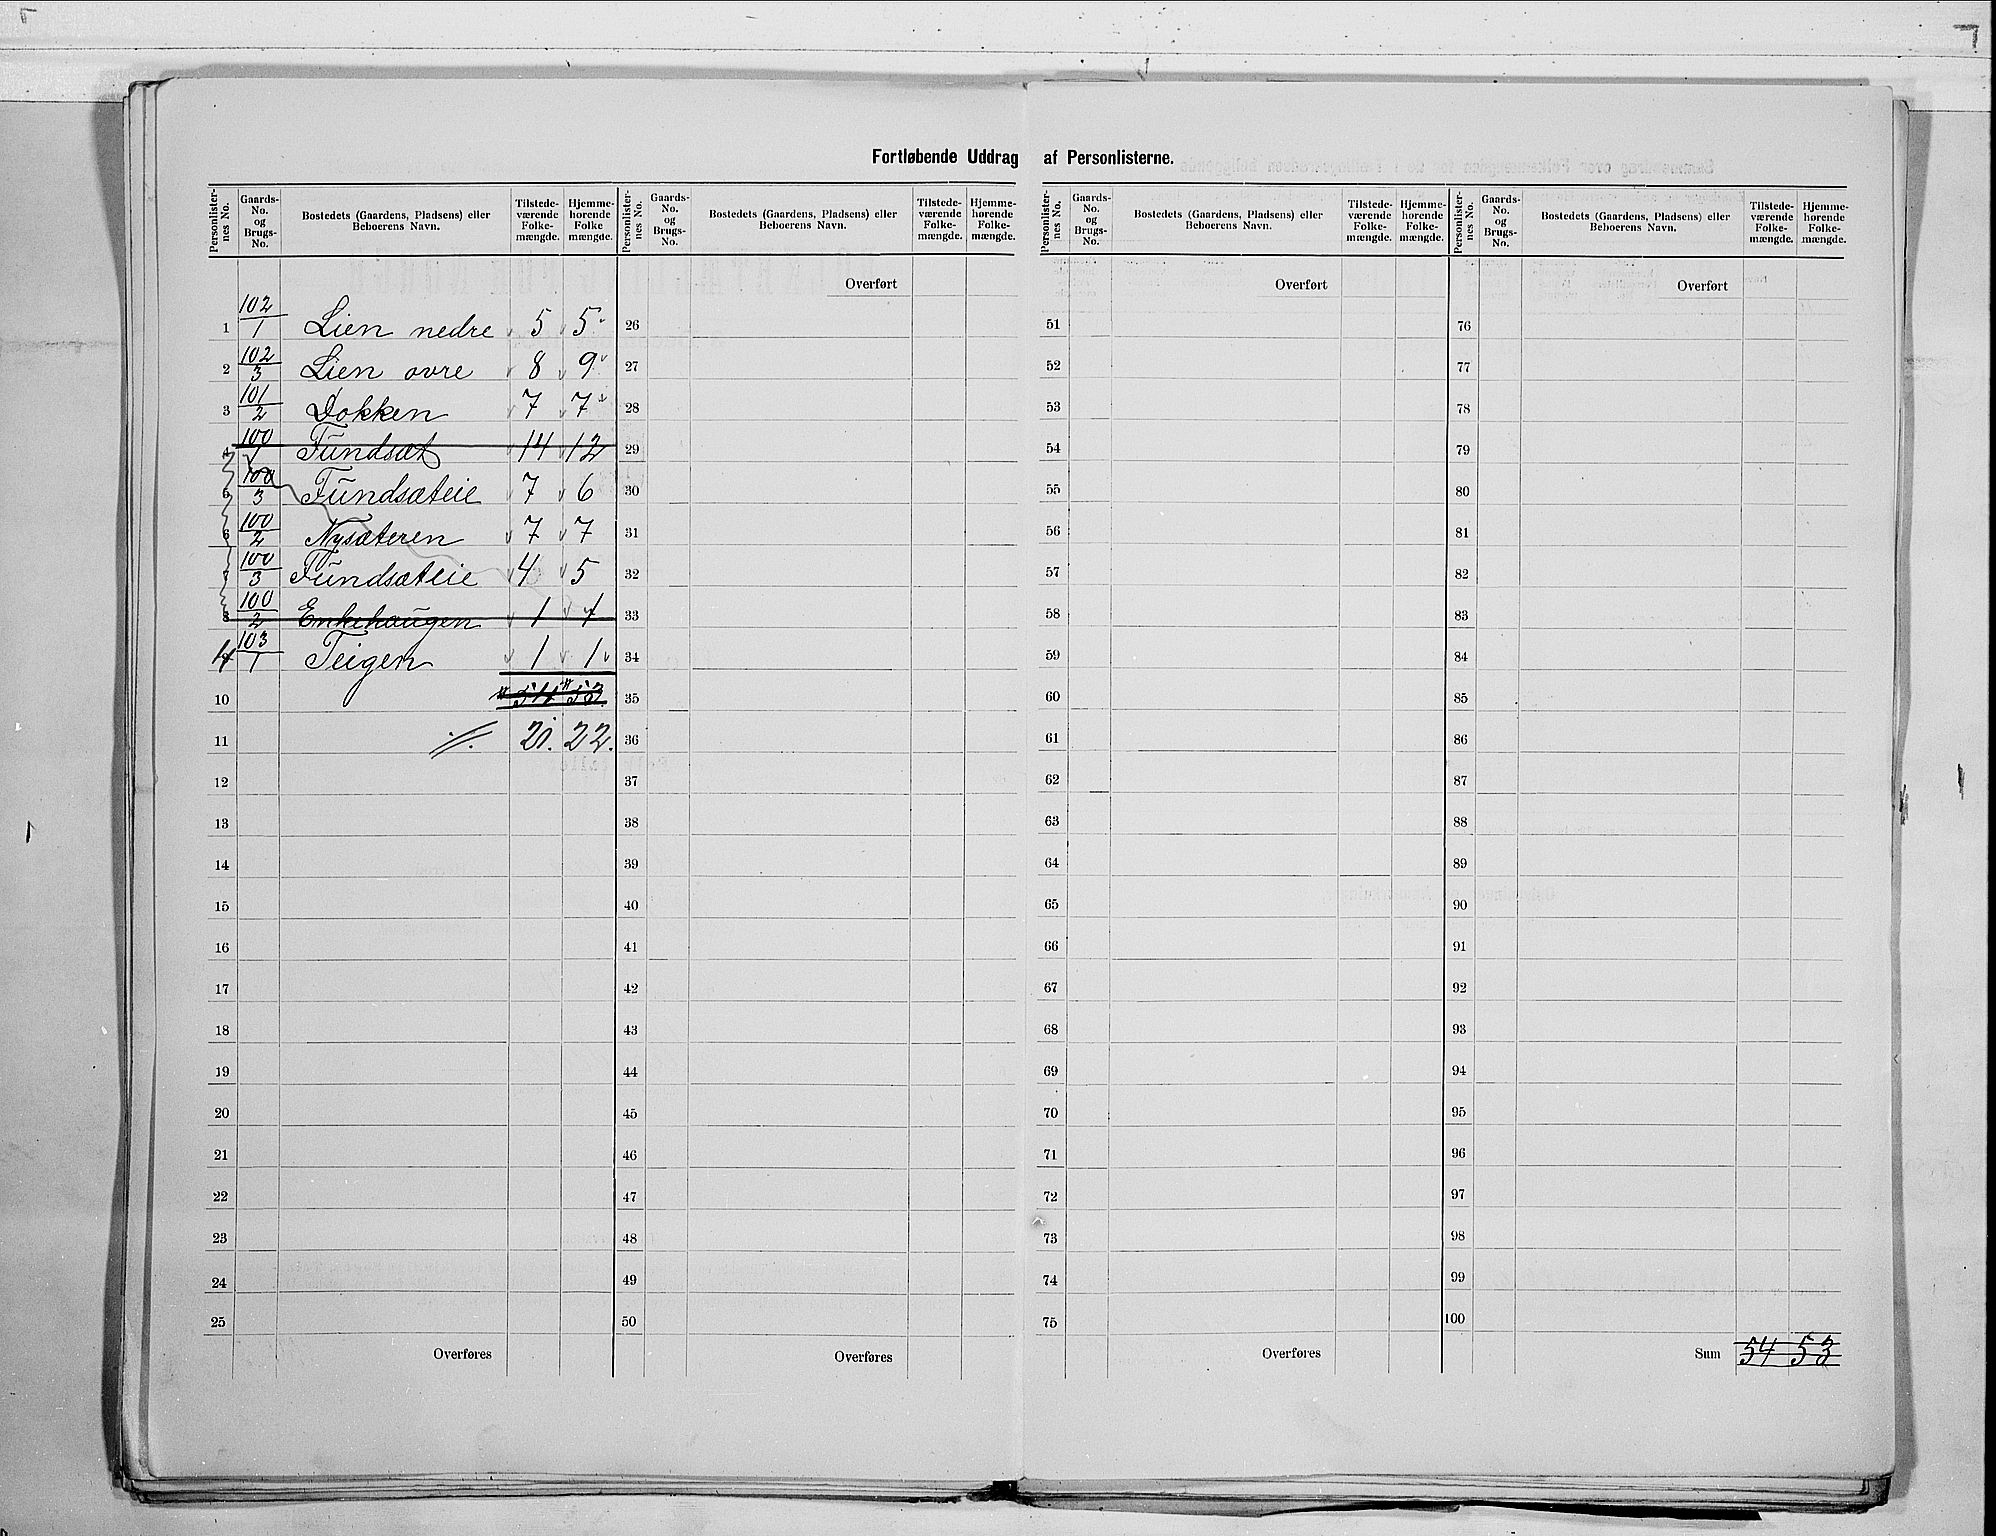 Fortløbende Uddrag af Personlisterne.
Personlister-nes No. | Gaards-No. og Brugs-No. | Bostedets (Gaardens, Pladsens) eller Beboerens Navn. | Tilstede-værende Folke-mængde. | Hjemme-hørende Folke mængde. | Personlister-nes No. | Gaards-No. og Brugs-No. | Bostedets (Gaardens, Pladsens) eller Beboerens Navn. | Tilstede-værende Folke-mængde. | Hjemme-hørende Folke-mængde. | Personlister-nes No. | Gaards-No. og Brugs-No. | Bostedets (Gaardens, Pladsens) eller Beboerens Navn. | Tilstede-værende Folke-mængde. | Hjemme-hørende Folke-mængde. | Personlister-nes No. | Gaards-No. og Brugs-No. | Bostedets (Gaardens, Pladsens) eller Beboerens Navn. | Tilstede-værende Folke-mængde. | Hjemme-hørende Folke-mængde.
Overført Overført Overført
1 102/1 Lien nedre 5 5 26 51 76
2 102/3 Lien øvre 8 9 27 52 77
3 101/2 Dokken 7 7 28 53 78
4 100/1 Fundsæt 14 12 29 54 79
5 100/3 Fundsæteie 7 6 30 55 80
6 100/2 Nysæteren 7 7 31 56 81
7 100/3 Fundsæteie 4 5 32 57 82
8 100/2 Enkehaugen 1 1 33 58 83
4 103/1 Teigen 1 1 34 59 84
10 54 53 35 60 85
11 21. 22. 36 61 86
12 37 62 87
13 38 63 88
14 39 64 89
15 40 65 90
16 41 66 91
17 42 67 92
18 43 68 93
19 44 69 94
20 45 70 95
21 46 71 96
22 47 72 97
23 48 73 98
24 49 74 99
25 50 75 100
Overføres Overføres Overføres Sum 54 53